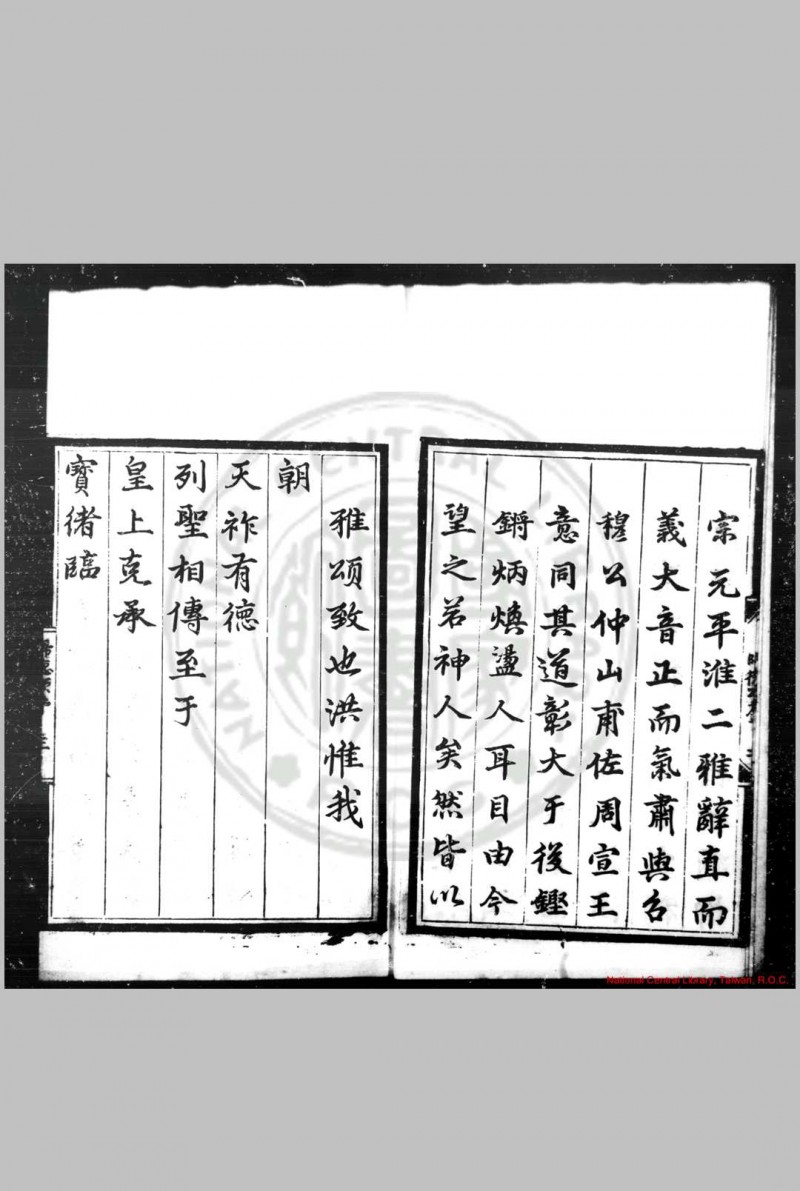 宗元平淮二雅辭直而
義大音正而氣肅與召
穆公仲山甫佐周宣王
意同其道彰大于後鏗
鏘炳煥盪人耳目由今
望之若神人矣然皆以
雅頌致也洪惟我
朝
天祚有德
列聖相傳至于
皇上克承
寶緒臨
National Central Library, Taiwan, R.O.C.